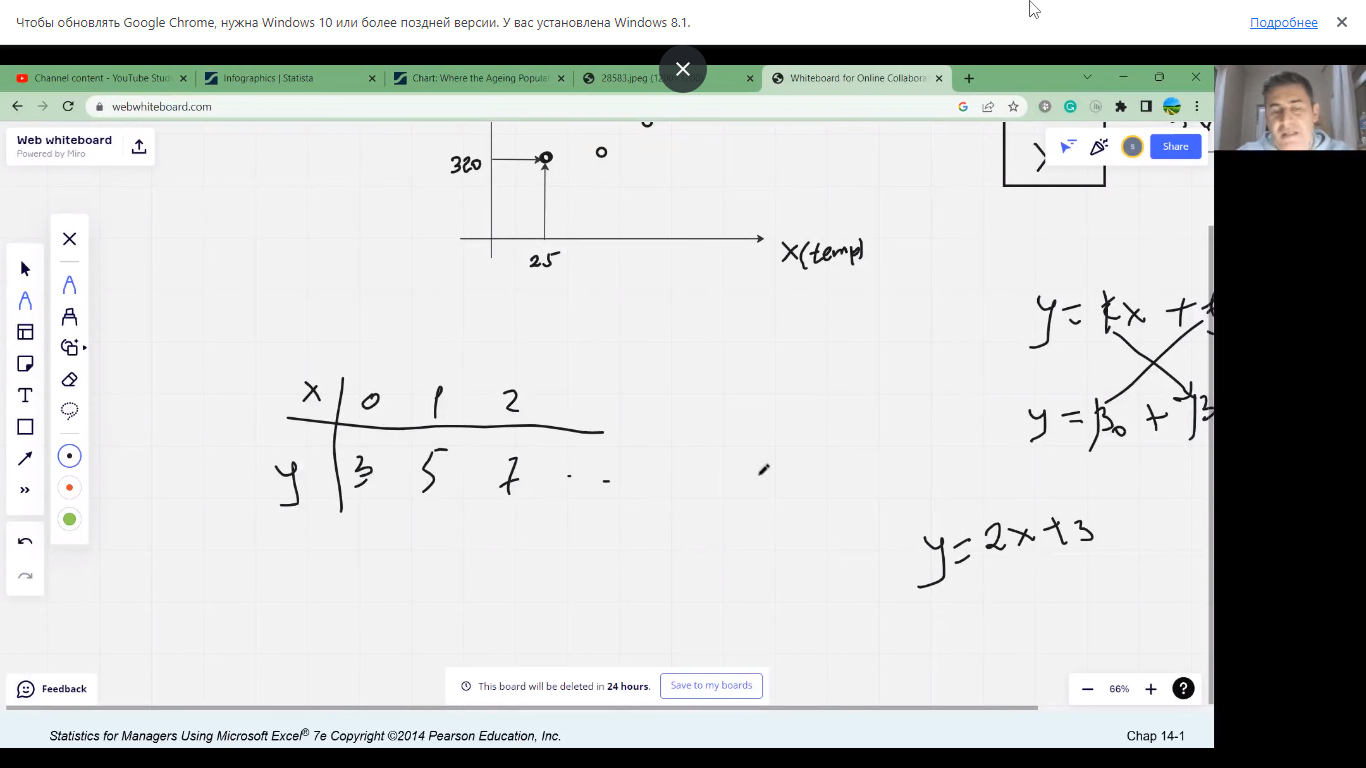 Чтобы обновлять Google Chrome, нужна Windows 10 или более поздней версии. У вас установлена Windows 8.1.
Подробнее
Channel content - YouTube Stud
Infographics | Statista
Chart: Where the Ageing Popula
28583.jpeg
Whiteboard for Online Collabora
webwhiteboard.com
Web whiteboard
Powered by Miro
s
Share
320
25
X(temp)
y = kx +
y = β0 +
X 0 1 2
y 3 5 7 . .
y = 2x + 3
T
Feedback
This board will be deleted in 24 hours.
Save to my boards
66%
?
Statistics for Managers Using Microsoft Excel® 7e Copyright ©2014 Pearson Education, Inc.
Chap 14-1